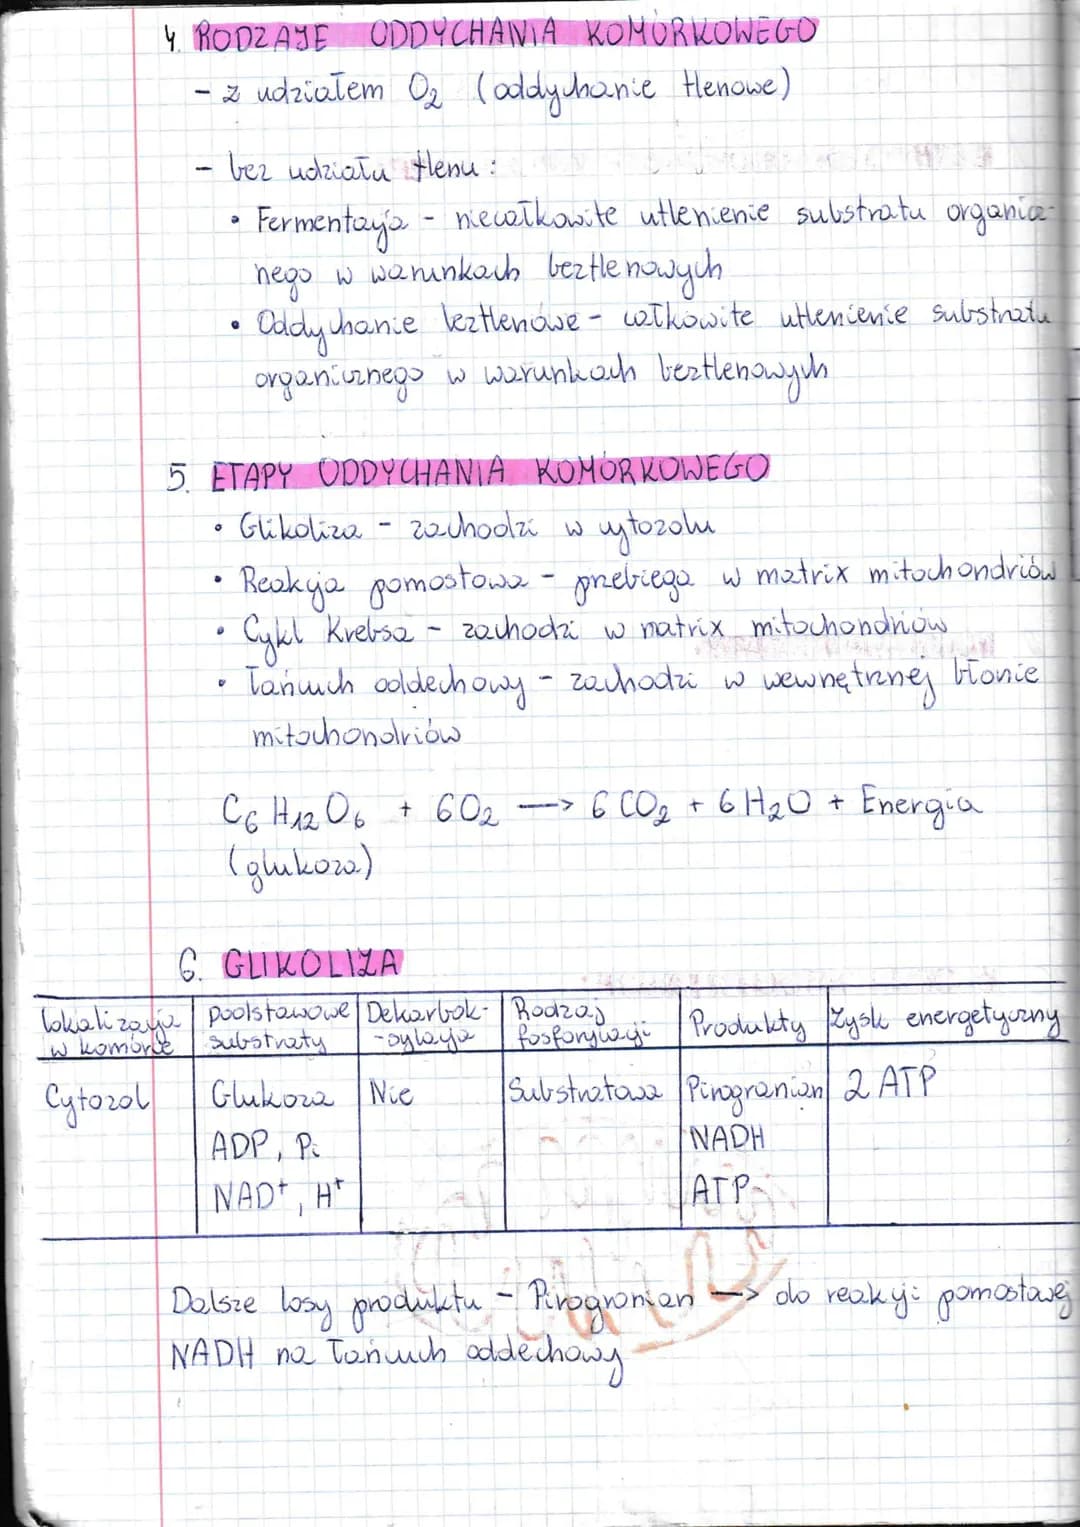 4. RODZAJE ODDYCHANIA KOMÓRKOWEGO
- z udziałem O₂ (oddychanie tlenowe)
- bez udziału tlenu :
• Fermentacja - niecałkowite utlenienie substratu organicz-
nego w warunkach beztlenowych
• Oddychanie beztlenowe - całkowite utlenienie substratu
organicznego w warunkach beztlenowych
5. ETAPY ODDYCHANIA KOMÓRKOWEGO
• Glikoliza - zachodzi w cytozolu
• Reakcja pomostowa - przebiega w matrix mitochondriów
• Cykl Krebsa - zachodzi w matrix mitochondriów
• Łańcuch oddechowy - zachodzi w wewnętrznej błonie
mitochondriów
C₆H₁₂O₆ + 6O₂ —> 6CO₂ + 6H₂O + Energia
(glukoza)
6. GLIKOLIZA
lokalizacja w komórce | podstawowe substraty | Dekarbok-sylacja | Rodzaj fosforylacji | Produkty | Zysk energetyczny
Cytozol | Glukoza | Nie | Substratowa | Pirogronian | 2 ATP
ADP, Pi | NADH
NAD⁺, H⁺ | ATP
Dalsze losy produktu - Pirogronian —> do reakcji pomostowej
NADH na łańcuch oddechowy